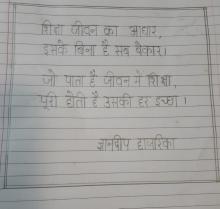 शिक्षा जीवन का आधार,
इसके बिना है सब बेकार।
जो पाता है जीवन में शिक्षा,
पूरी होती है उसकी हर इच्छा।
ज्ञानदीप हाजरिका